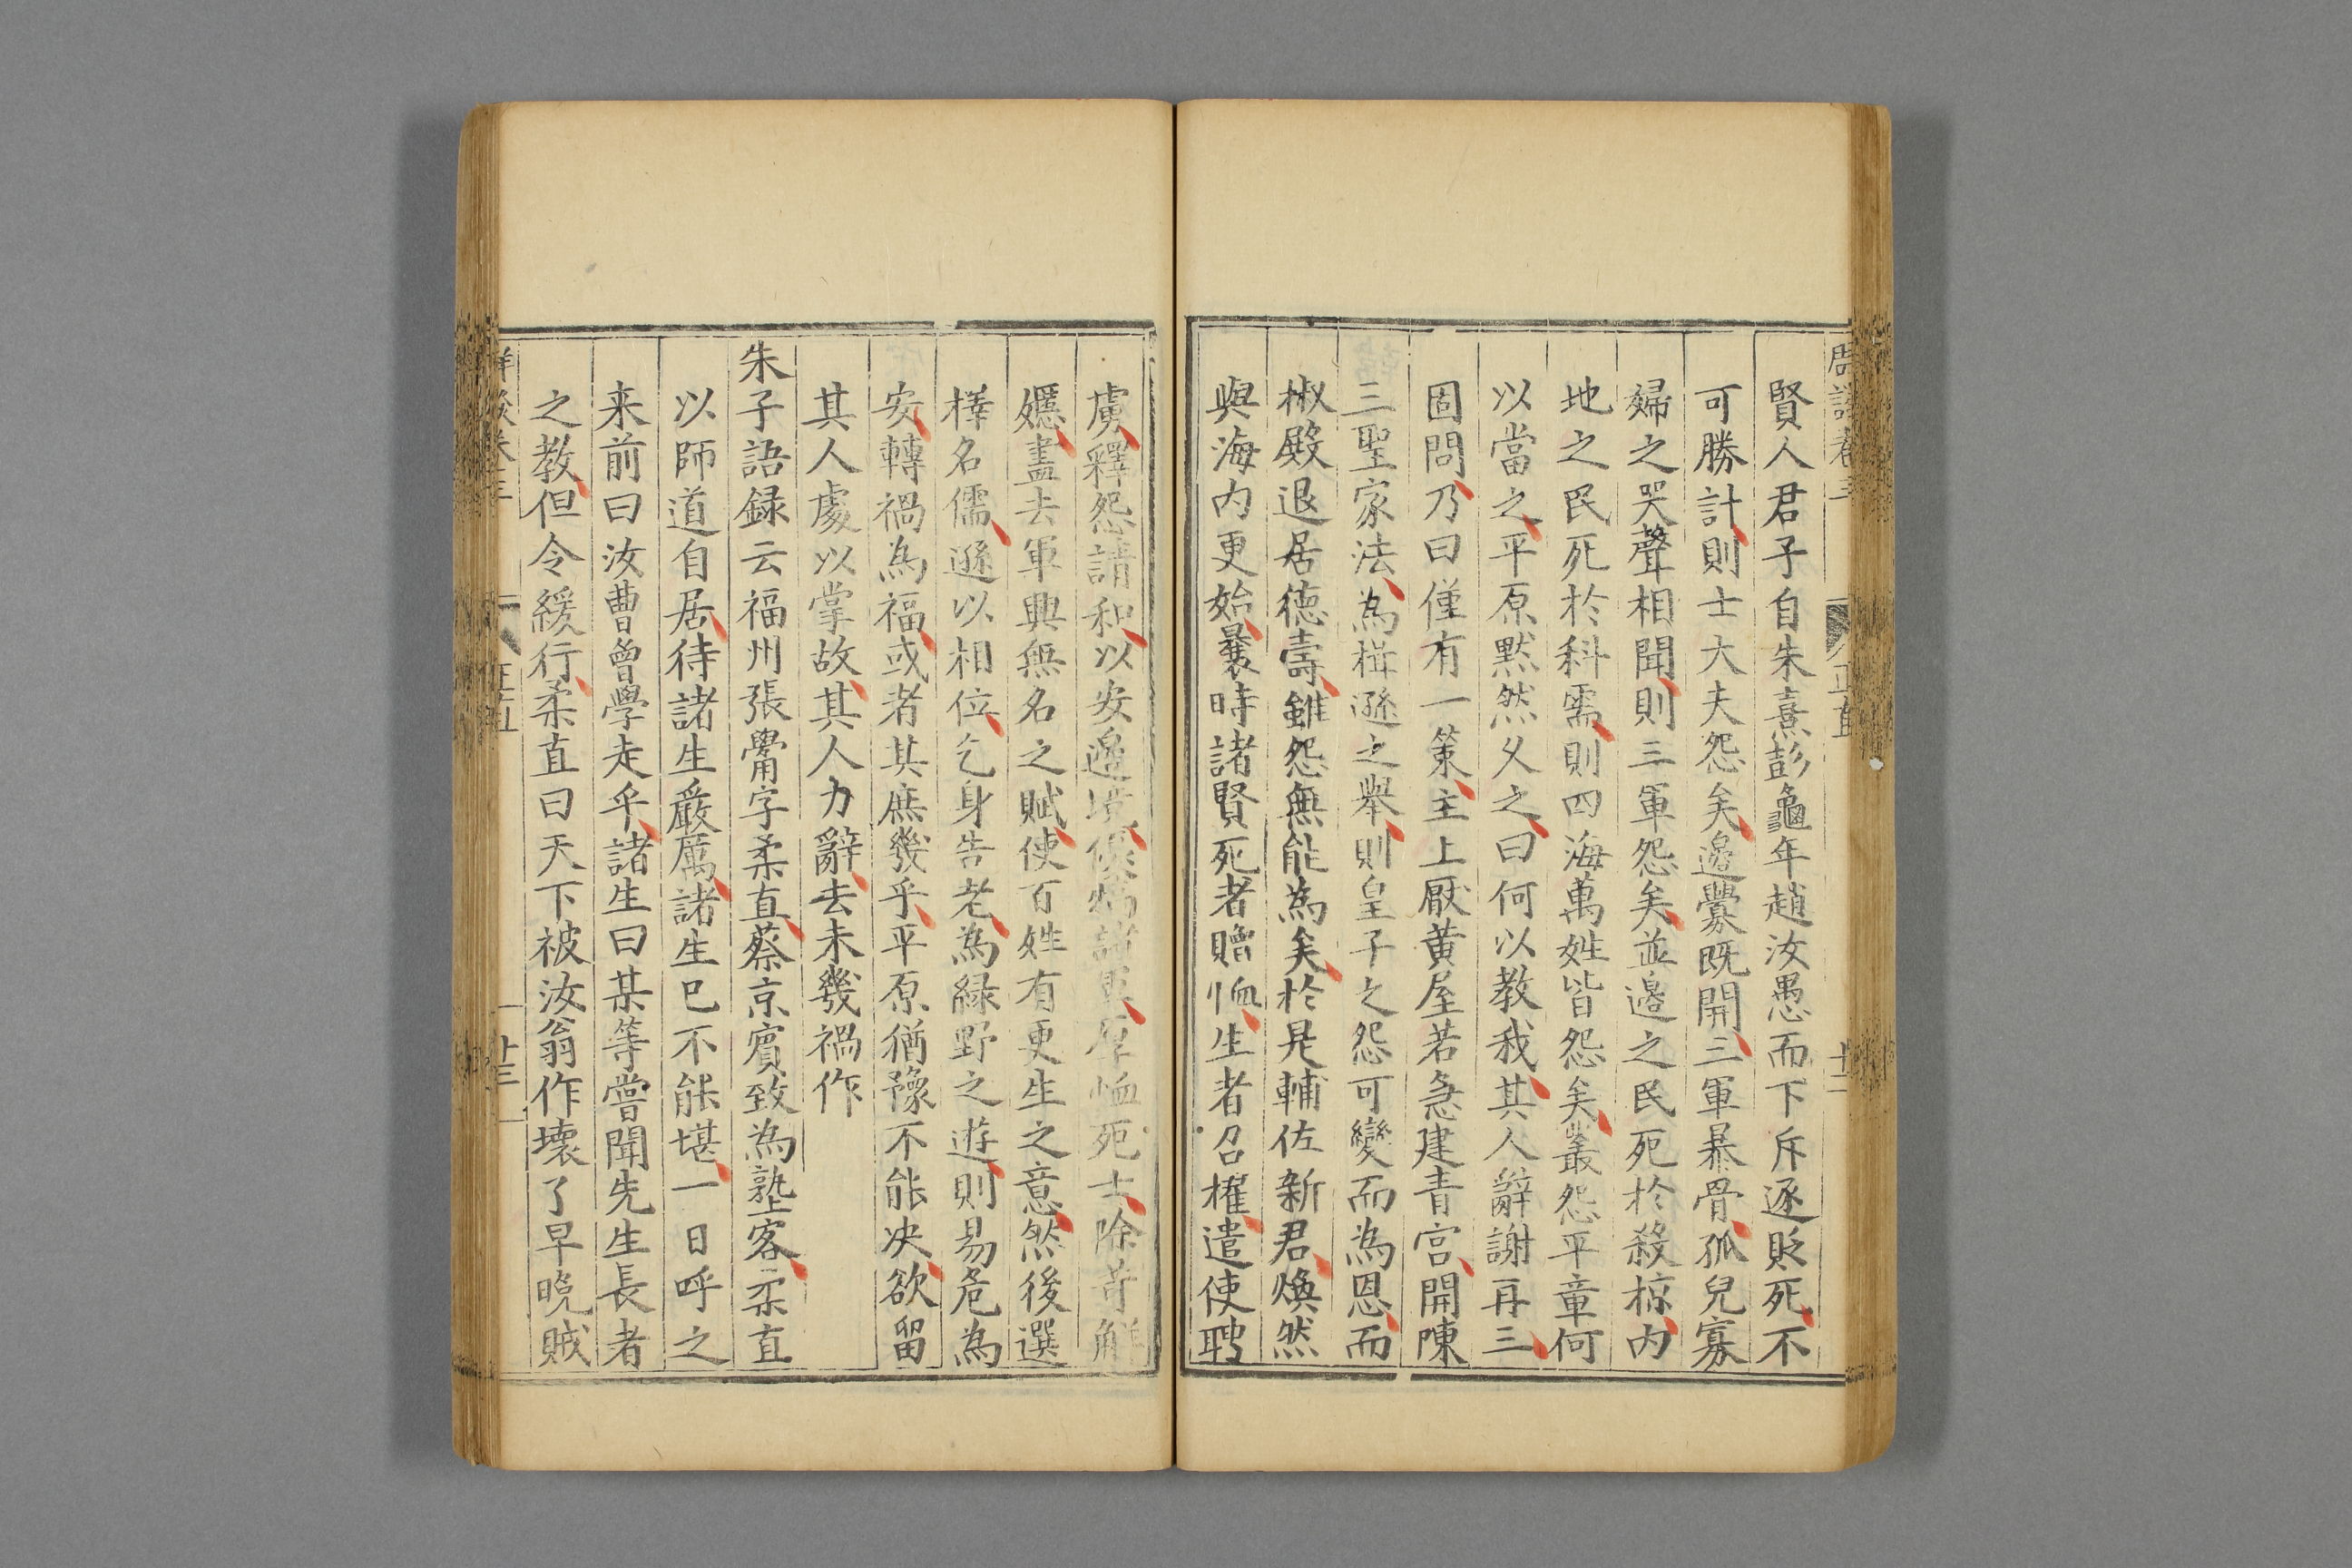 賢人君子自朱熹彭龜年趙汝愚而下斥逐貶死不
可勝計則士大夫怨矣邊釁既開三軍暴骨孤兒寡
婦之哭聲相聞則三軍怨矣並邊之民死於殺掠内
地之民死於科需則四海萬姓皆怨矣叢怨平章何
以當之平原黙然久之曰何以教我其人辭謝再三
固問乃曰僅有一策主上厭黄屋若急建青宫開陳
三聖家法為揖遜之舉則皇子之怨可變而為恩而
椒殿退居徳壽雖怨無能為矣於是輔佐新君煥然
與海内更始曩時諸賢死者贈恤生者召擢遣使聘
虜釋怨請和以安邊境優犒諸軍厚恤死士除苛解
嬺盡去軍興無名之賦使百姓有更生之意然後選
擇名儒遜以相位乞身告老為緑野之遊則易危為
安轉禍為福或者其庶幾乎平原猶豫不能决欲留
其人處以掌故其人力辭去未幾禍作
朱子語録云福州張觷字柔直蔡京賓致為塾客柔直
以師道自居待諸生嚴厲諸生已不能堪一日呼之
来前曰汝曹曾學走乎諸生曰某等嘗聞先生長者
之教但令緩行柔直曰天下被汝翁作壊了早晚賊